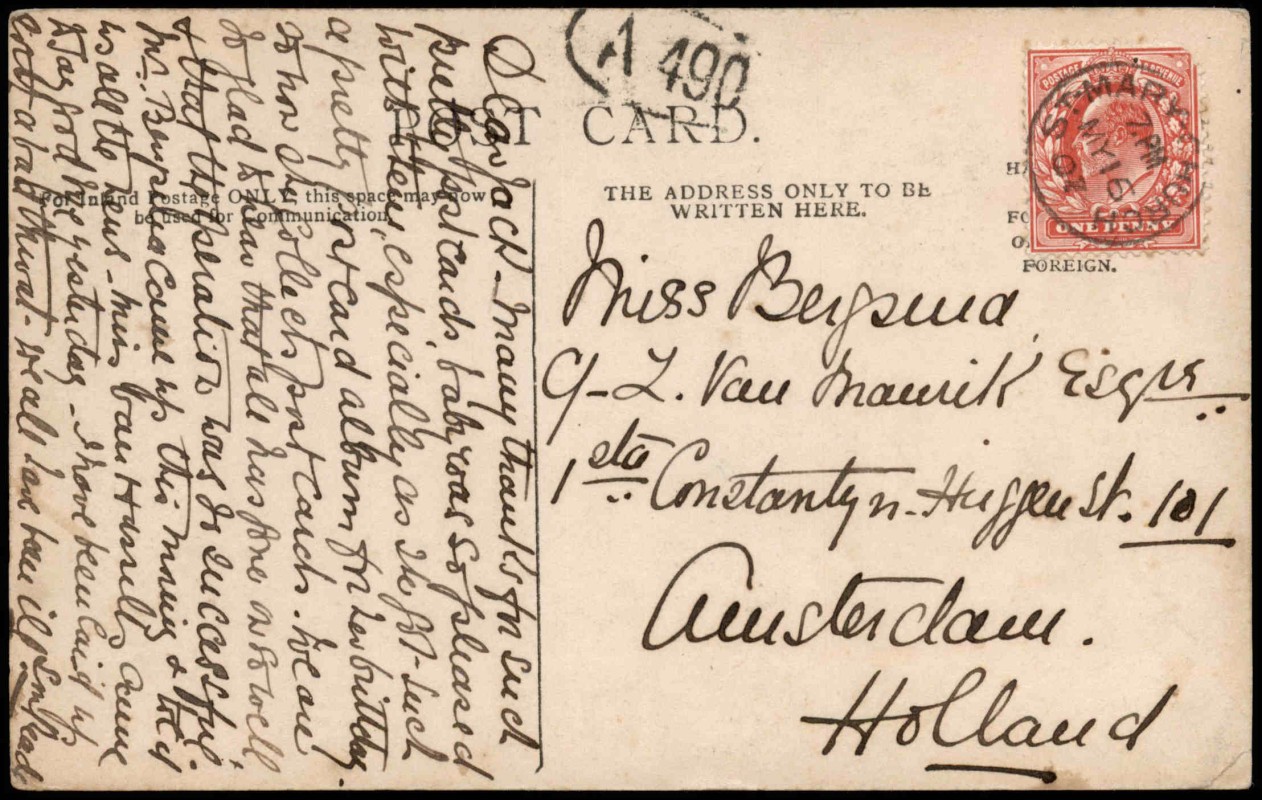 A 490
POST CARD.
For Inland Postage ONLY, this space may now
be used for Communication.
THE ADDRESS ONLY TO BE
WRITTEN HERE.
FOREIGN.
POSTAGE REVENUE
ONE PENNY
ST. MARY CHURCH
7 PM
MY 16
04
Miss Bergsma
c/- L. Van Maurik Esqre
1sta Constantyn-Huygen St. 101
Amsterdam.
Holland
Dear Jack - Many thanks for such
pretty postcards baby was so pleased
with them, especially as she got such
a pretty post card album for her birthday.
so now she collects post cards. We are
so glad to hear that all has gone so well
& that the operation was so successful.
Mr. Bergsma came up this morning &
us all the news - Miss van Hasselt came
to say good bye yesterday - I have been laid up
with a bad throat - we all have been ill